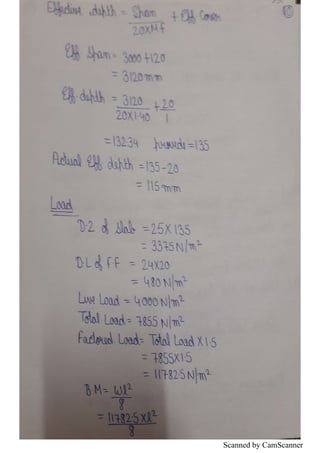 Effective depth = Span / 20×Mf + Eff Cover
Eff Span = 3000+120
= 3120mm
Eff. depth = 3120 / 20×1.40 + 20 / 1
= 132.34 provide = 135
Actual Eff depth = 135-20
= 115 mm
Load
D.L of slab = 25×135
= 3375 N/m²
D.L of F.F = 24×20
= 480 N/m²
Live Load = 4000 N/m²
Total Load = 7855 N/m²
Factored Load = Total Load × 1.5
= 7855×1.5
= 11782.5 N/m²
B.M = Wl² / 8
= 11782.5×l² / 8
Scanned by CamScanner